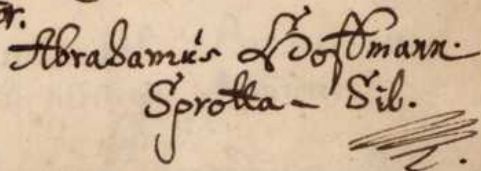 Abrahamus Hoffmann.
Sprotta - Sil.